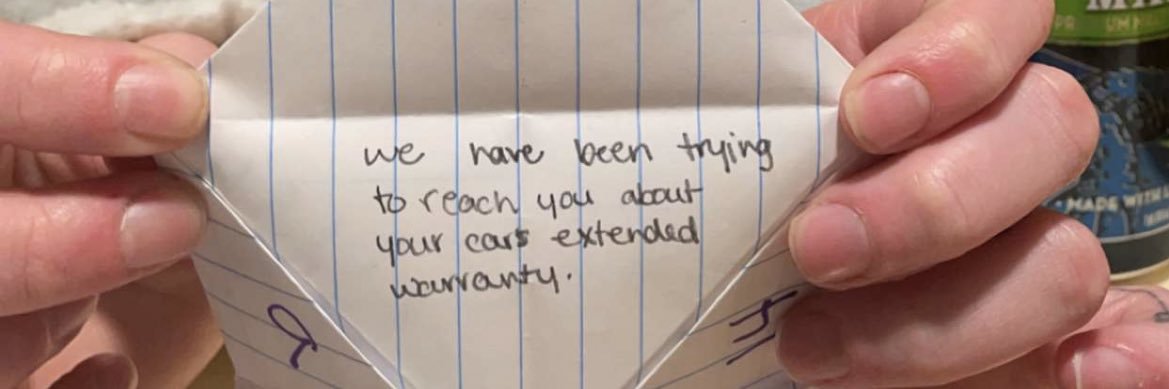 we have been trying
to reach you about
your cars extended
warranty.
MADE WITH